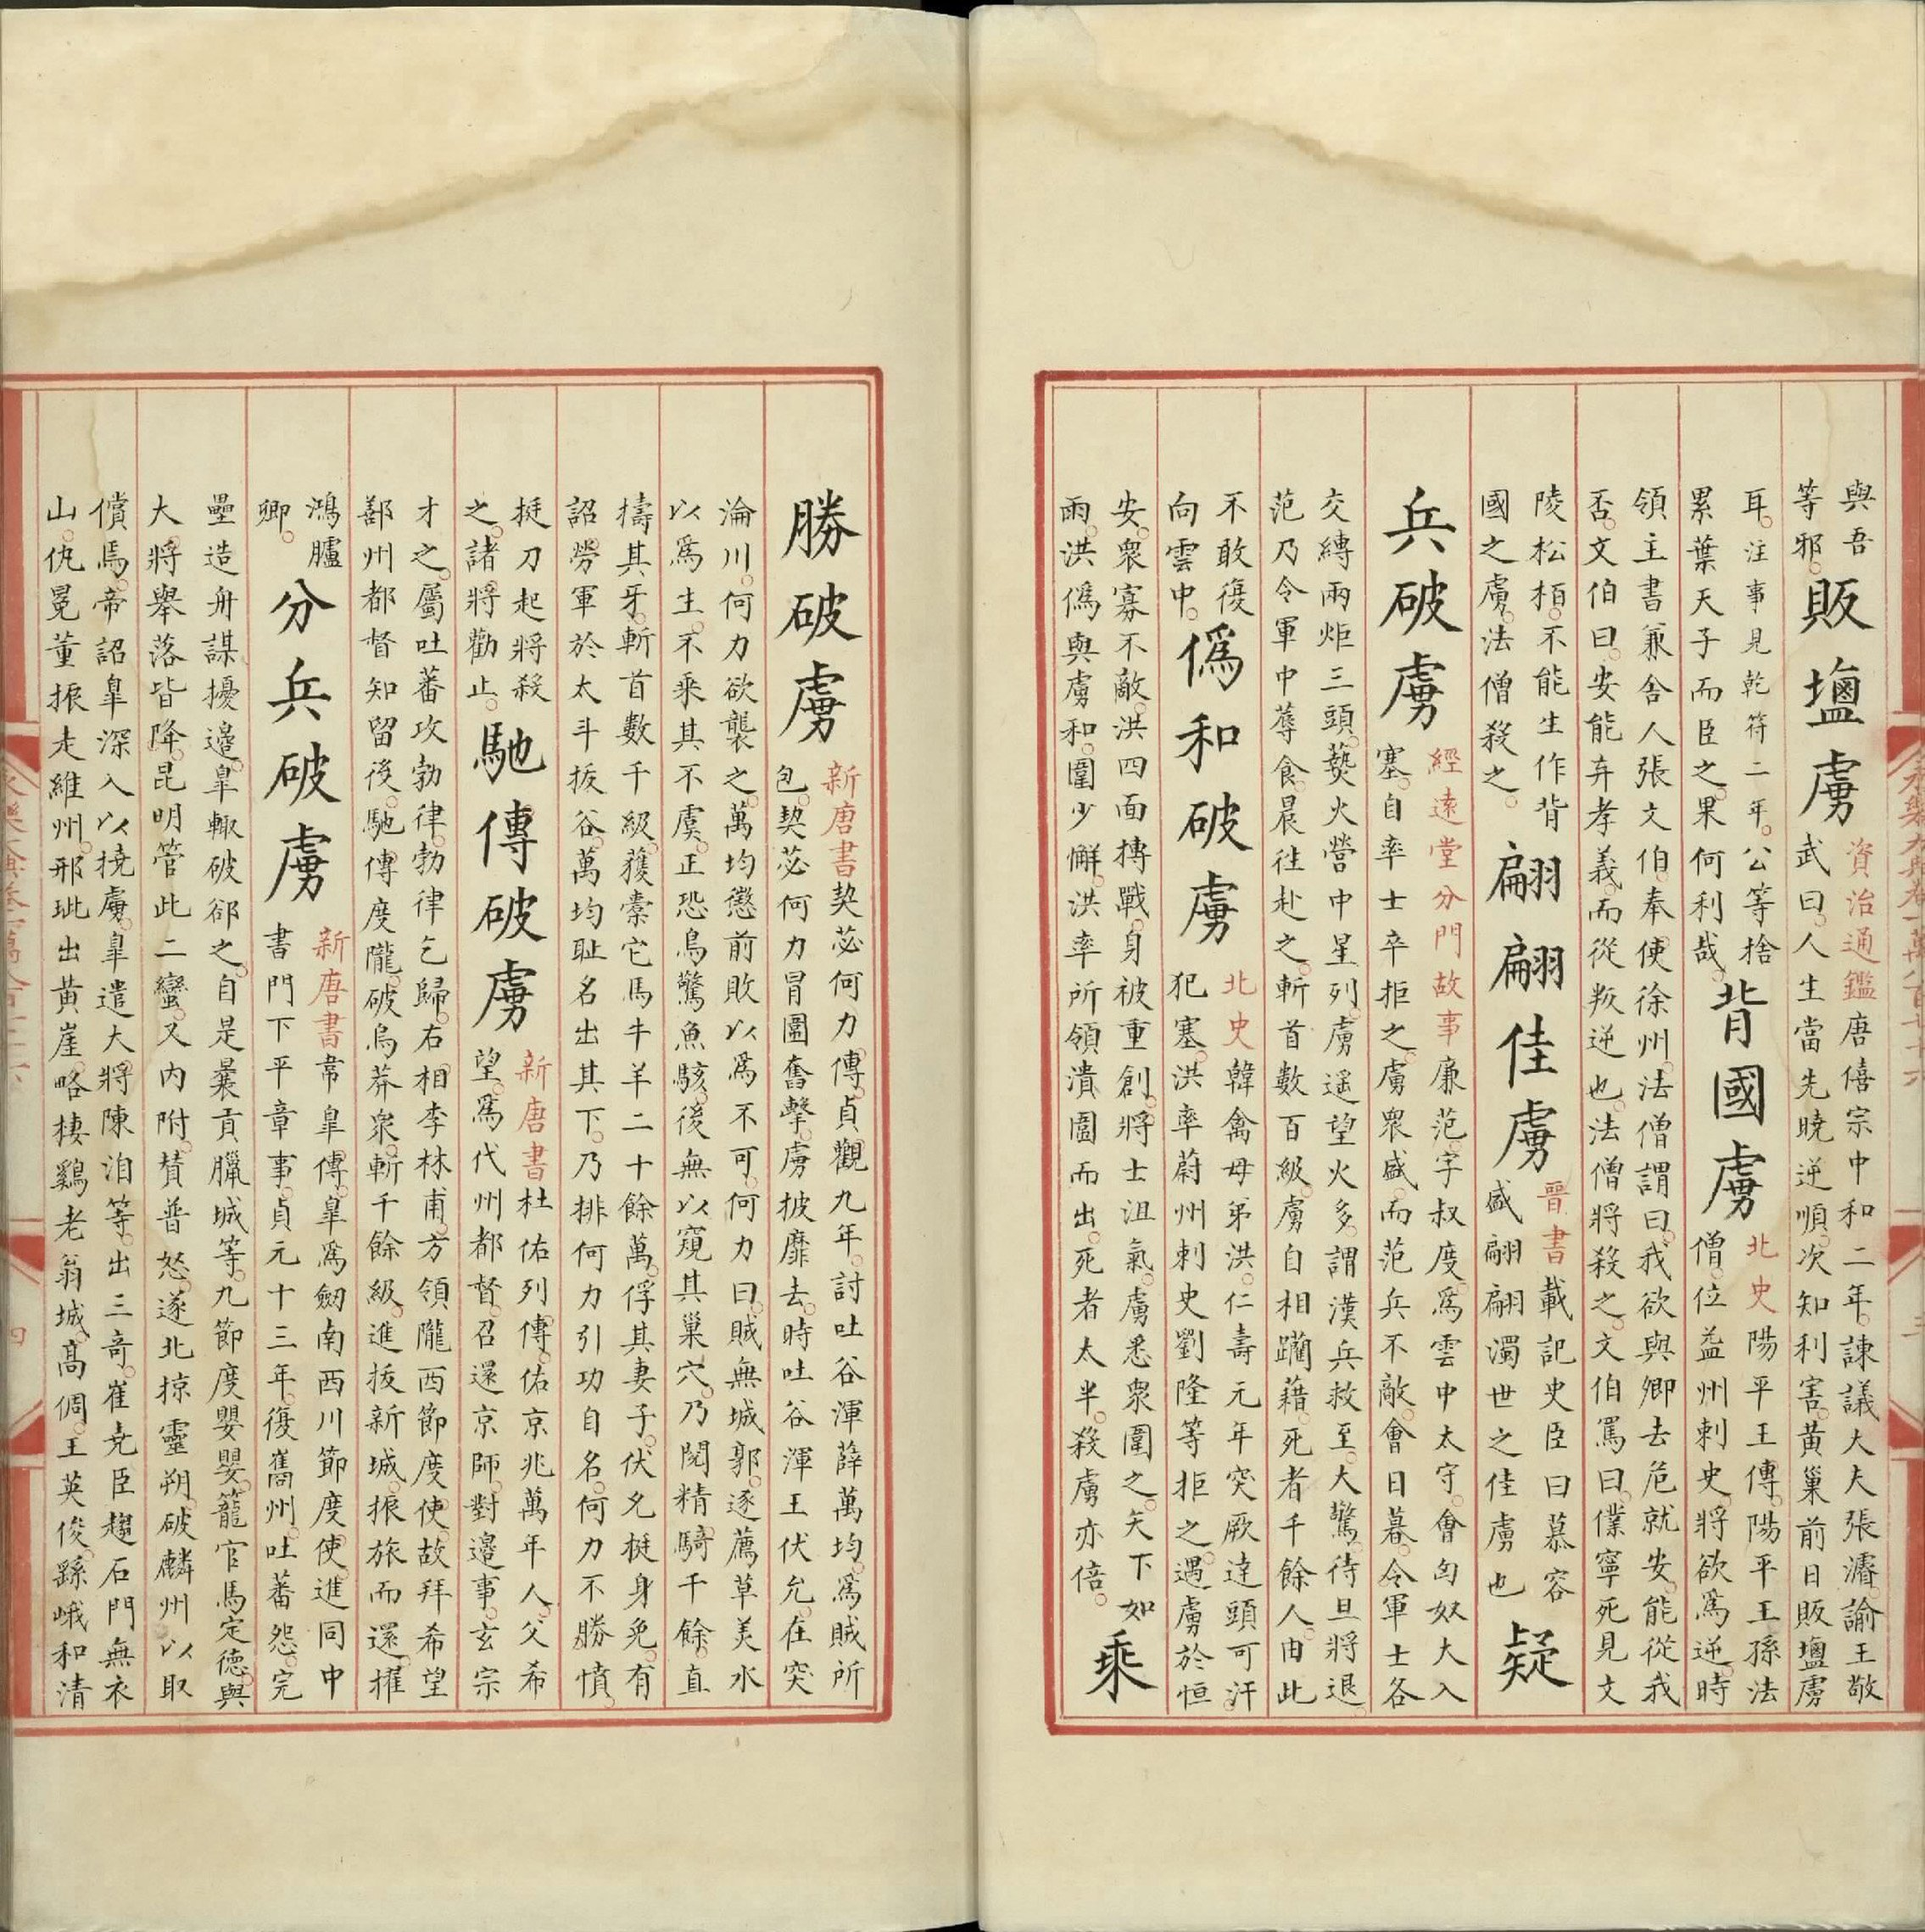 與吾
等邪。
販塩虜
資治通鑑唐僖宗中和二年。諫議大夫張濬。諭王敬
武曰。人生當先曉逆順。次知利害。黃巢前日販塩虜
耳。注事見乾符二年。公等捨
累葉天子而臣之。果何利哉。
背國虜
北史陽平王傳。陽平王孫法
僧。位益州刺史。將欲爲逆。時
領主書兼舍人張文伯。奉使徐州。法僧謂曰。我欲與卿去危就安。能從我
否。文伯曰。安能弃孝義。而從叛逆也。法僧將殺之。文伯罵曰。僕寧死見文
陵松栢。不能生作背
國之虜。法僧殺之。
翩翩佳虜
晉書載記史臣曰慕容
盛翩翩濁世之佳虜也
疑
兵破虜
經遠堂分門故事廉范。字叔度。爲雲中太守。會匈奴大入
塞。自率士卒拒之。虜衆盛。而范兵不敵。會日暮。令軍士各
交縛兩炬三頭。爇火營中星列。虜遥望火多。謂漢兵救至。大驚。待旦將退。
范乃令軍中蓐食。晨徃赴之。斬首數百級。虜自相躪藉。死者千餘人。由此
不敢復
向雲中。
僞和破虜
北史韓禽母弟洪。仁壽元年突厥達頭可汗
犯塞。洪率蔚州刺史劉隆等拒之。遇虜於恒
安。衆寡不敵。洪四面摶戰。身被重創。將士沮氣。虜悉衆圍之。矢下如
雨。洪僞與虜和。圍少懈。洪率所領潰圍而出。死者太半。殺虜亦倍。
乘
勝破虜
新唐書契苾何力。傳。貞觀九年。討吐谷渾薛萬均。爲賊所
包。契苾何力冒圍奮擊。虜披靡去。時吐谷渾王伏允。在突
淪川。何力欲襲之。萬均懲前敗。以爲不可。何力曰。賊無城郭。逐薦草美水
以爲生。不乘其不虞。正恐鳥驚魚駭。後無以窺其巢穴。乃閱精騎千餘。直
擣其牙。斬首數千級。獲橐它馬牛羊二十餘萬。俘其妻子。伏允挺身免。有
詔勞軍於太斗拔谷。萬均耻名出其下。乃排何力引功自名。何力不勝憤。
挺刀起將殺
之。諸將勸止。
馳傳破虜
新唐書杜佑列傳。佑京兆萬年人。父希
望。爲代州都督。召還京師。對邊事。玄宗
才之。屬吐蕃攻勃律。勃律乞歸。右相李林甫。方領隴西節度使。故拜希望
鄯州都督知留後。馳傳度隴。破烏莽衆。斬千餘級。進拔新城。振旅而還。擢
鴻臚
卿。
分兵破虜
新唐書韋皐傳。皐爲劒南西川節度使。進同中
書門下平章事。貞元十三年。復巂州。吐蕃怨。完
壘造舟謀擾邊。皐輙破郤之。自是曩貢臘城等。九節度嬰嬰。籠官馬定德。與
大將舉落皆降。昆明管此二蠻。又內附。贊普怒。遂北掠靈朔。破麟州以取
償焉。帝詔皐深入以撓虜。皐遣大將陳洎等。出三竒。崔尭臣趨石門無衣
山。仇冕董振走維州。邢玼出黃崖。略棲鷄老翁城。高倜。王英俊。繇峨和清